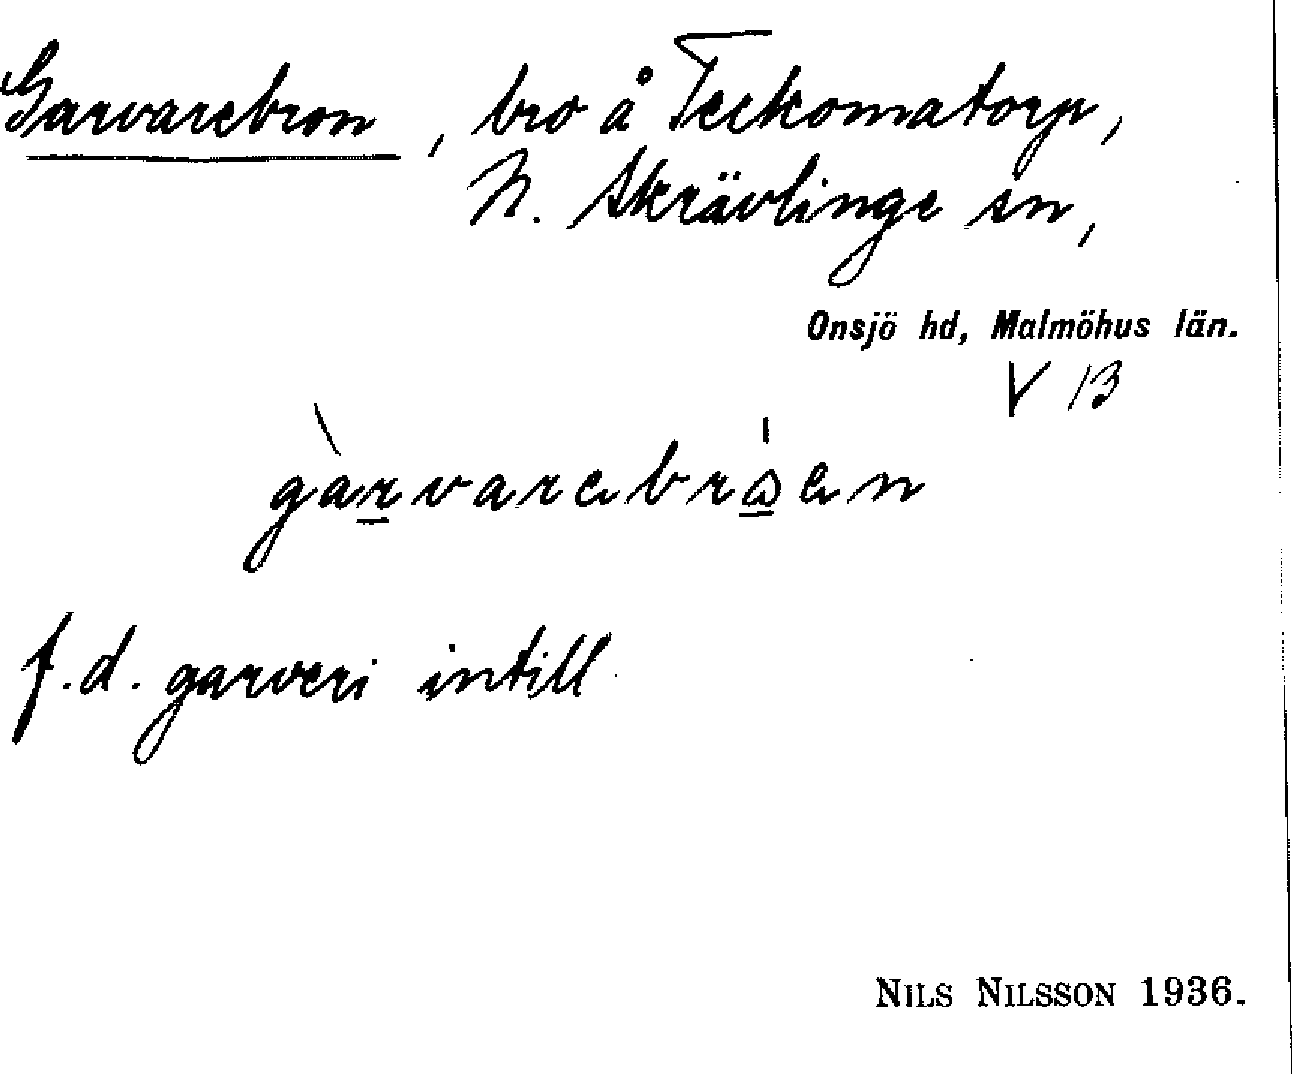 Garvarebron, bro å Teckomatorp,
N. Skrävlinge sn,
Onsjö hd, Malmöhus län.
V 13
f.d. garveri intill
NILS NILSSON 1936.